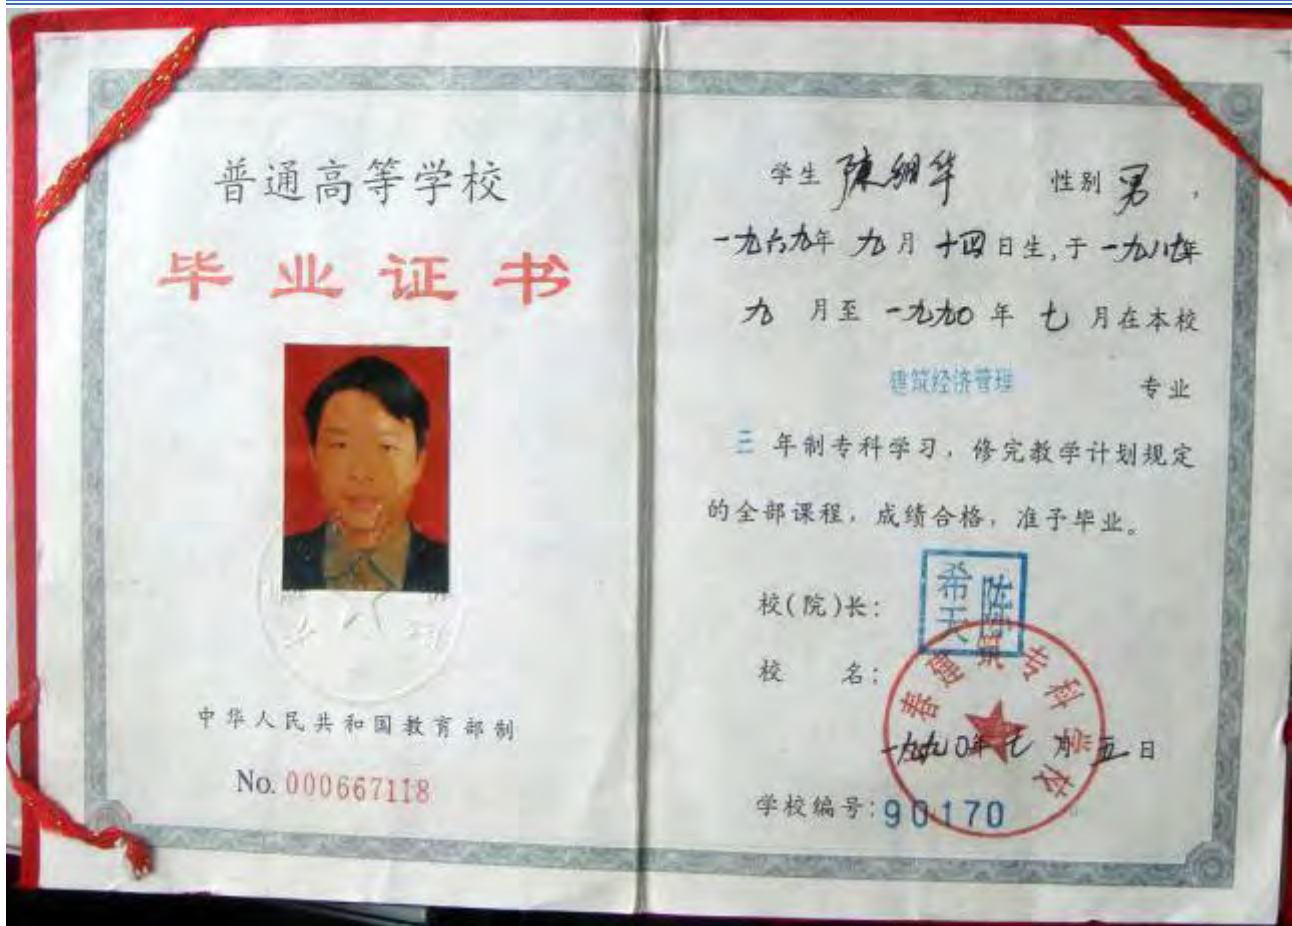 普通高等学校
毕业证书
中华人民共和国教育部制
No. 000667118
学生 陳 华 性别 男,
一九六九年 九月 十四日生,于 一九八七年
九 月至 一九九0 年 七 月在本校
建筑经济管理 专业
三 年制专科学习,修完教学计划规定
的全部课程,成绩合格,准予毕业。
校(院)长:
陈希天
校 名:
春建筑专科学校
一九九0年七月五日
学校编号:90170